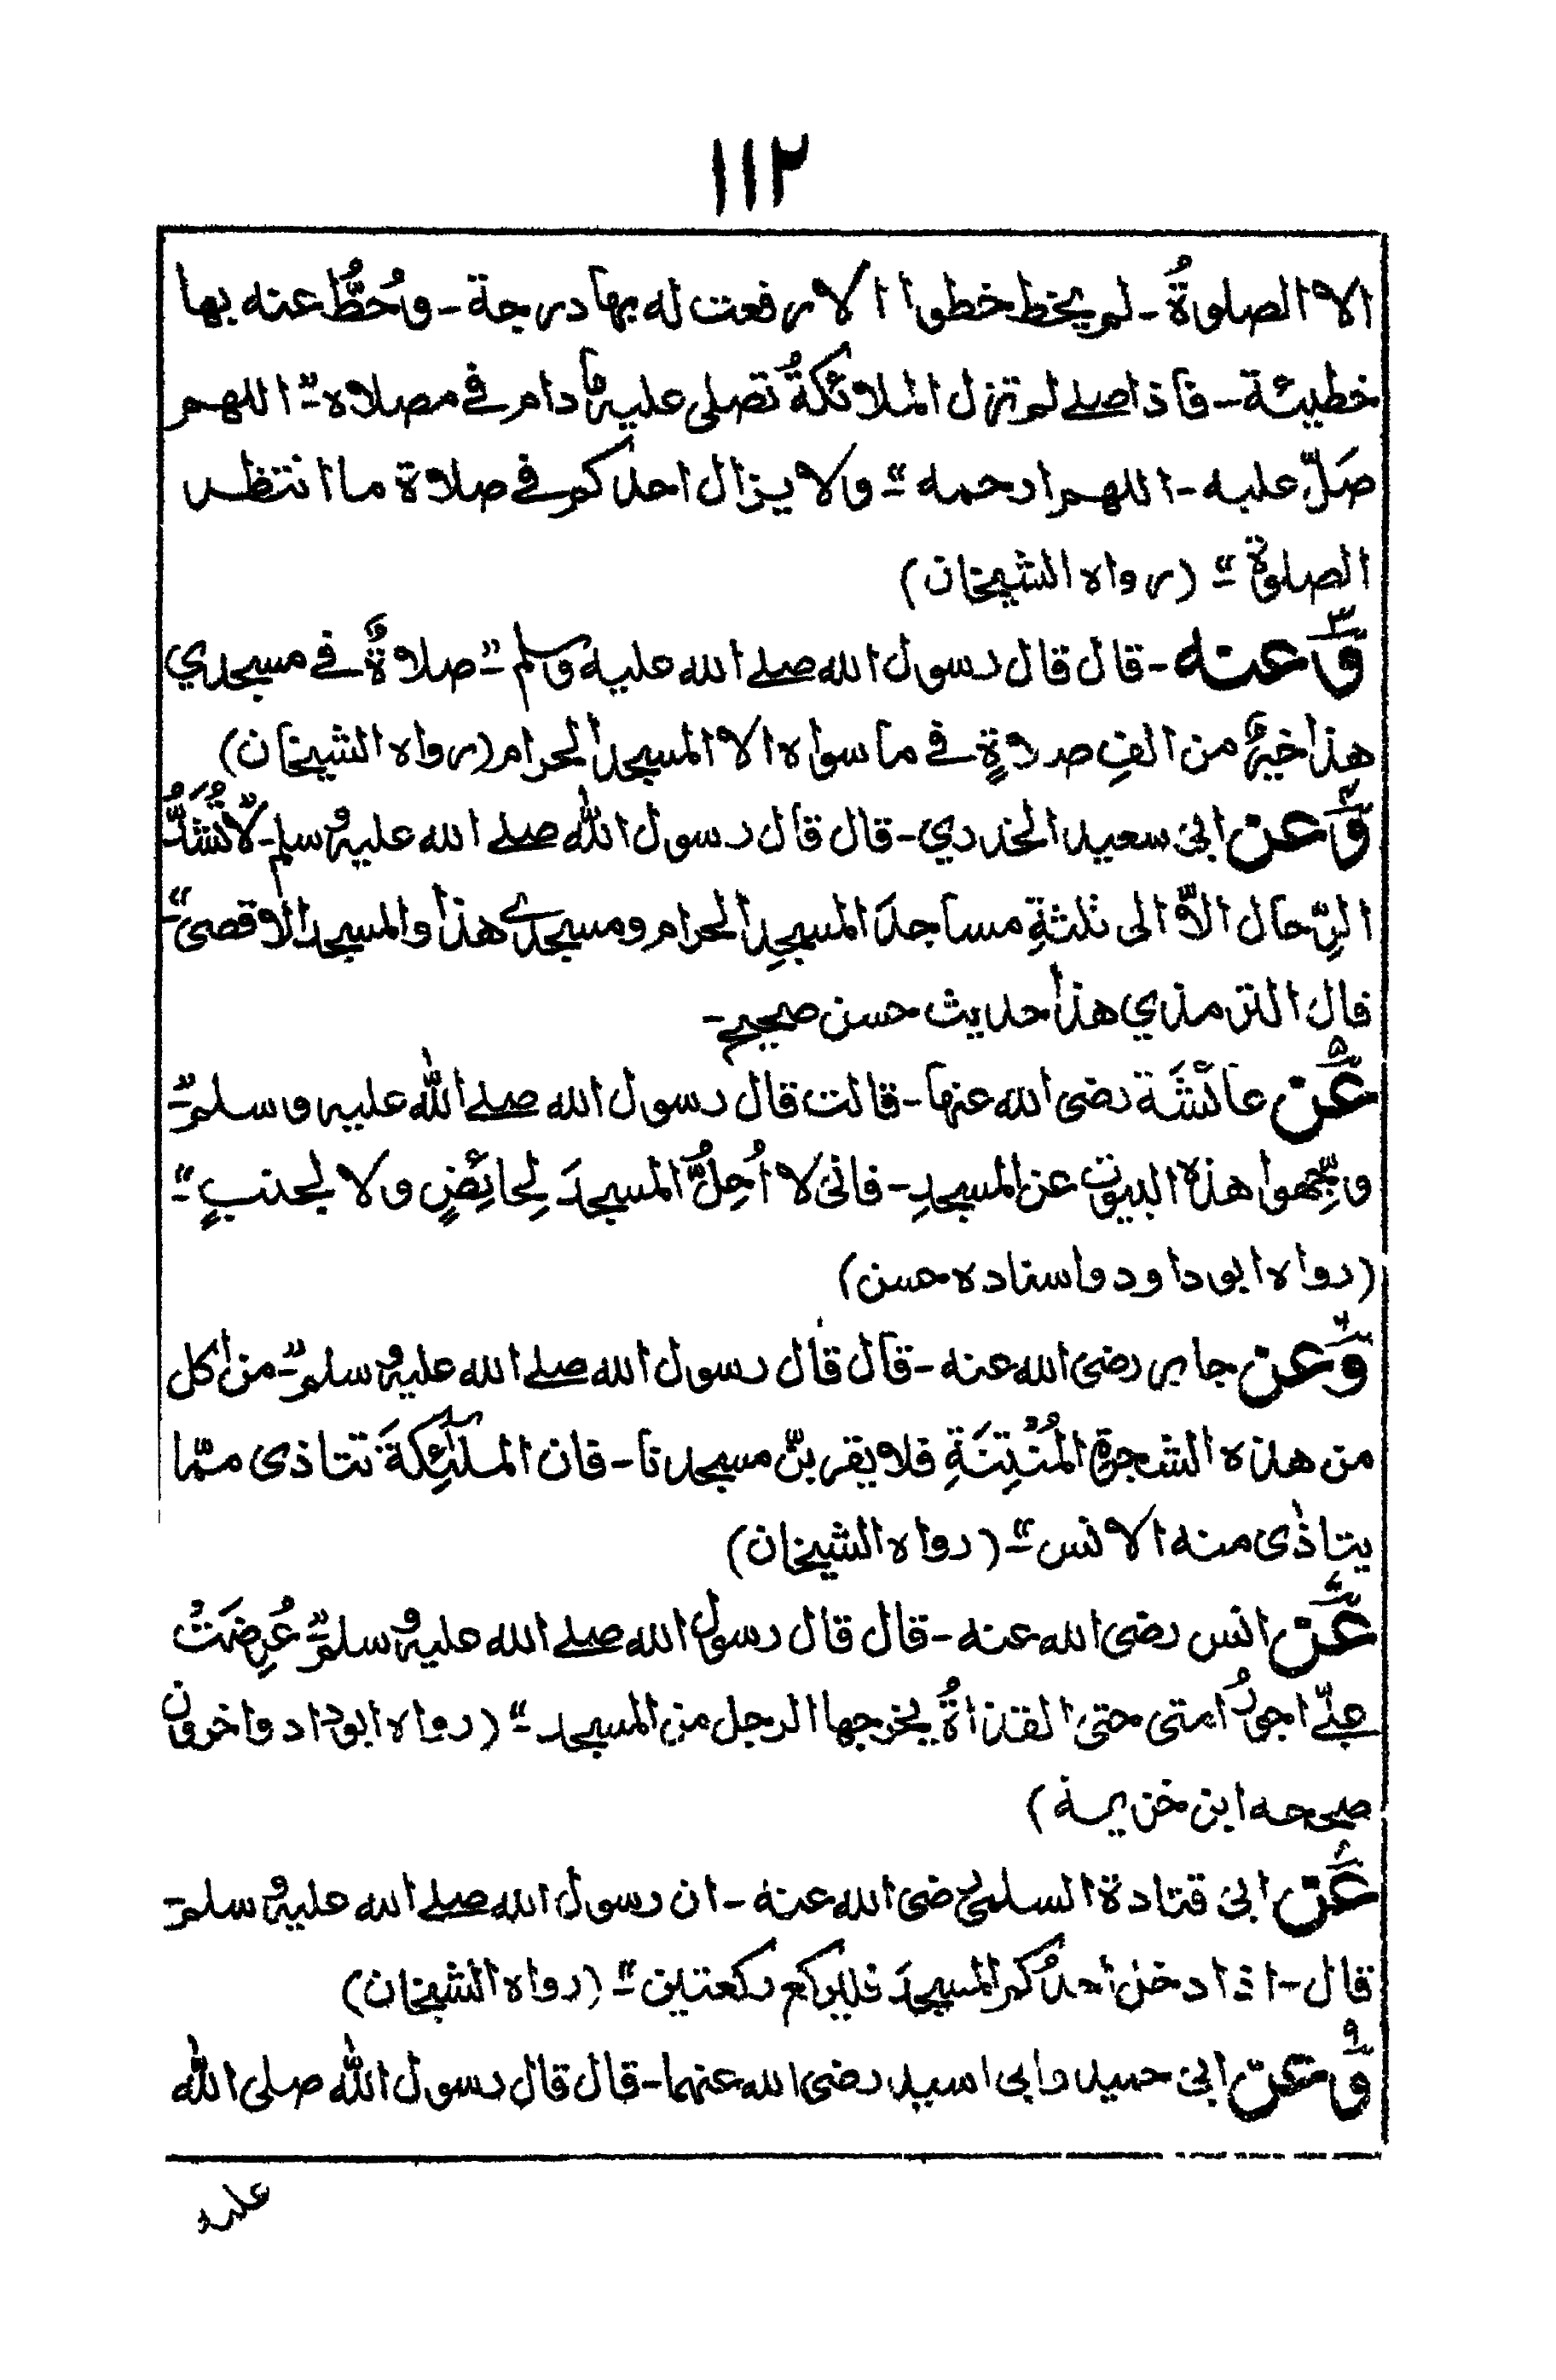 ١١٢
الا الصلوةُ ـ لم يخط خطوا الا رفعت له بها درجة ـ وحُطُّ عنه بها
خطيئة ـ فاذا صلے لم تزل الملائكةُ تصلى عليه ما دام فے مصلاه ـ" اللهم
صَلّ عليه ـ اللهم ارحمه ـ" ولا يزال احدكم فے صلاة ما انتظر
الصلوة ـ" (رواه الشيخان)
٣ وَعنه ـ قال قال رسول الله صلے الله عليه وسلم ـ" صلاةٌ فے مسجدي
هذا خيرٌ من الفِ صلاةٍ فے ما سواه الا المسجد الحرام (رواه الشيخان)
٤ وَعن ابى سعيد الخدري ـ قال قال رسول الله صلے الله عليه وسلم ـ لَا تُشَدُّ
الرِّحال الّا الى ثلثةِ مساجدَ المسجدِ الحرام ومسجدے هذا والمسجد الاقصى ـ"
قال الترمذي هذا حديث حسن صحيح ـ
٥ عَن عائشَة رضى الله عنها ـ قالت قال رسول الله صلے الله عليه وسلم ـ"
وجِّهوا هذه البيوت عن المسجدِ ـ فانى لا اُحِلُّ المسجدَ لِحائِضٍ ولا لجنبٍ ـ"
(رواه ابو داود واسناده حسن)
٦ وَعن جابر رضى الله عنه ـ قال قال رسول الله صلے الله عليه وسلم ـ" من اكل
من هذه الشجرةِ المُنْتِنَةِ فلا يقربنّ مسجدنا ـ فان الملٰئِكةَ تتاذى ممّا
يتاذٰى منه الانس ـ" (رواه الشيخان)
٧ عَن انس رضى الله عنه ـ قال قال رسول الله صلے الله عليه وسلم ـ" عُرِضَتْ
علَےّ اجورُ امتى حتى القذاةُ يخرجها الرجل من المسجد ـ" (رواه ابوداد واخرون
صححه ابن خزيمة)
٨ عَن ابى قتادة السلمى رضى الله عنه ـ ان رسول الله صلے الله عليه وسلم ـ
قال ـ اذا دخل احدُكم المسجدَ فليركع ركعتين ـ" (رواه الشيخان)
٩ وَعن ابى حميد وابى اسيد رضى الله عنهما ـ قال قال رسول الله صلى الله
عليه